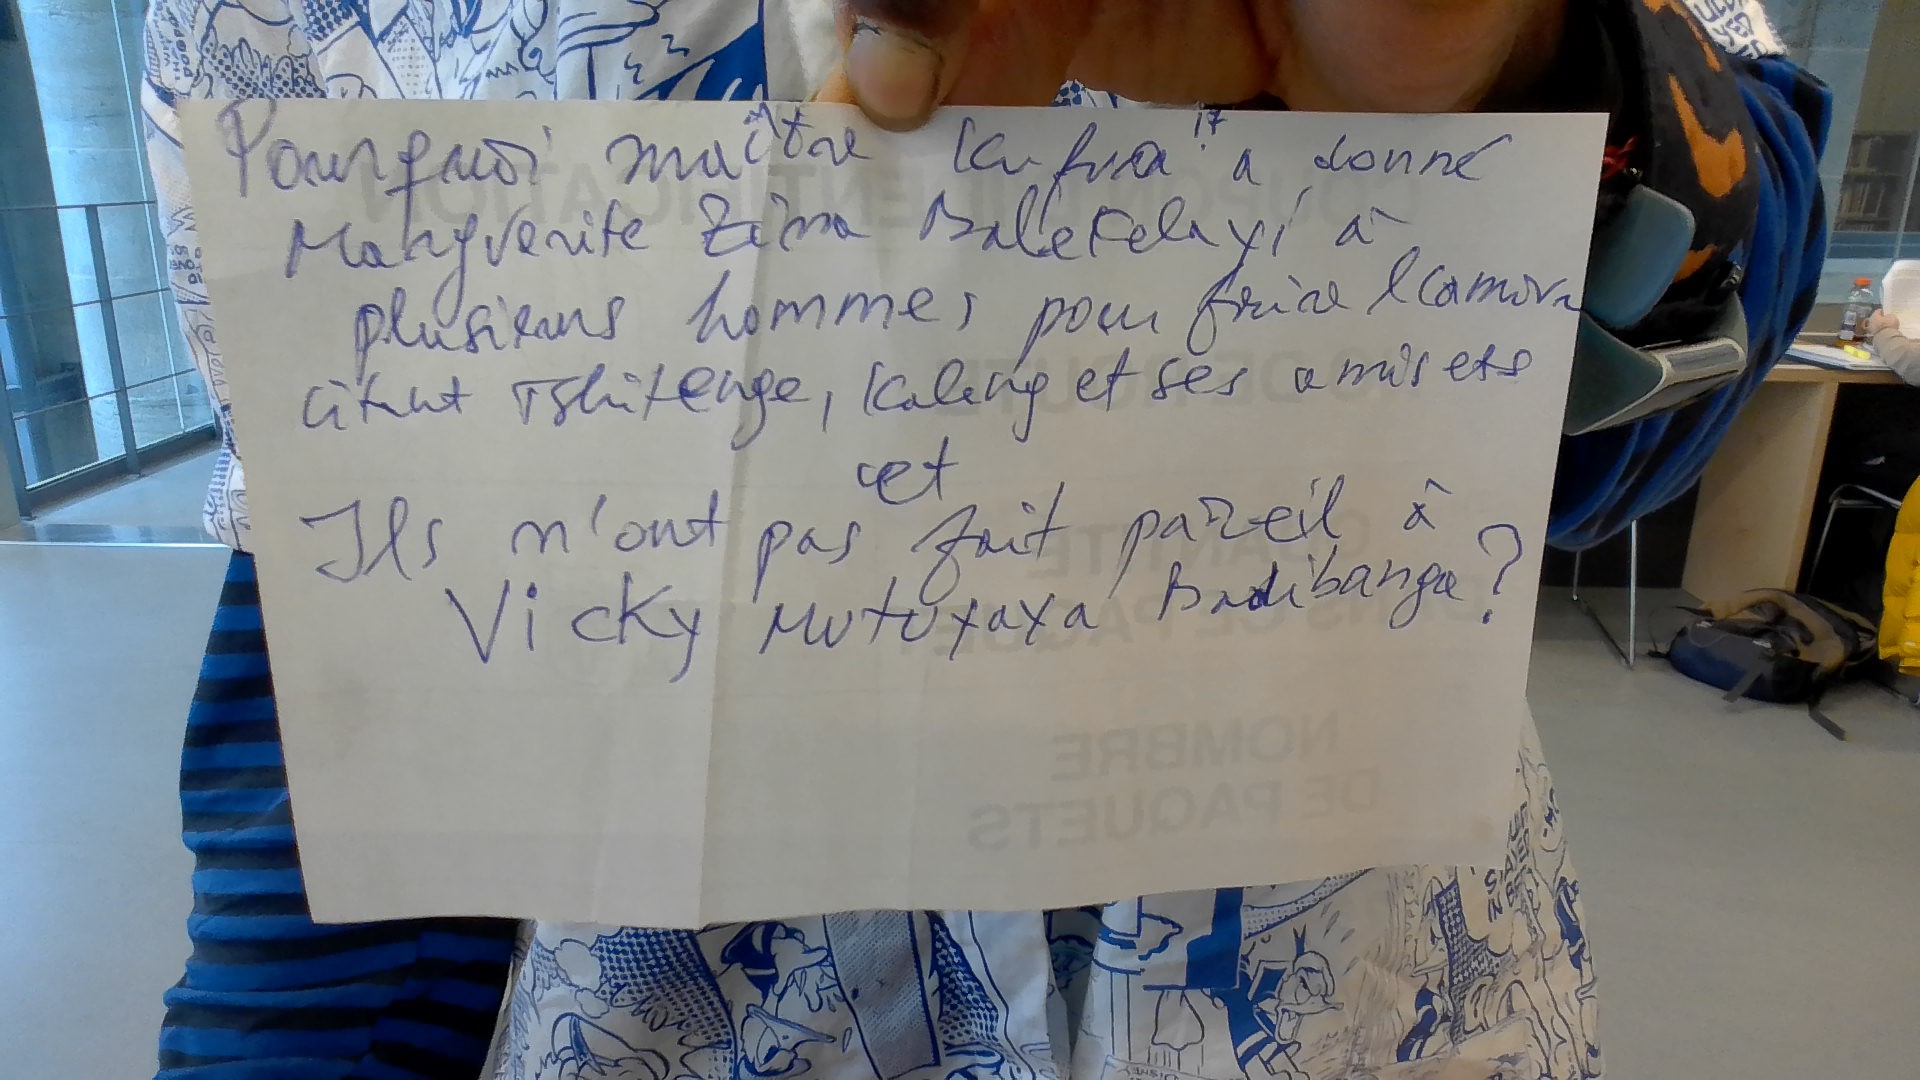 Pourquoi maître Kufua 17 a donné
Marguerite Zima Balekelayi à
plusieurs hommes pour faire l'camora
citant Tshitenge, Kaleng et ses amis ets
et
Ils n'ont pas fait pareil à
Vicky Mutoyaya Badibanga ?
NOMBRE
DE PAQUETS